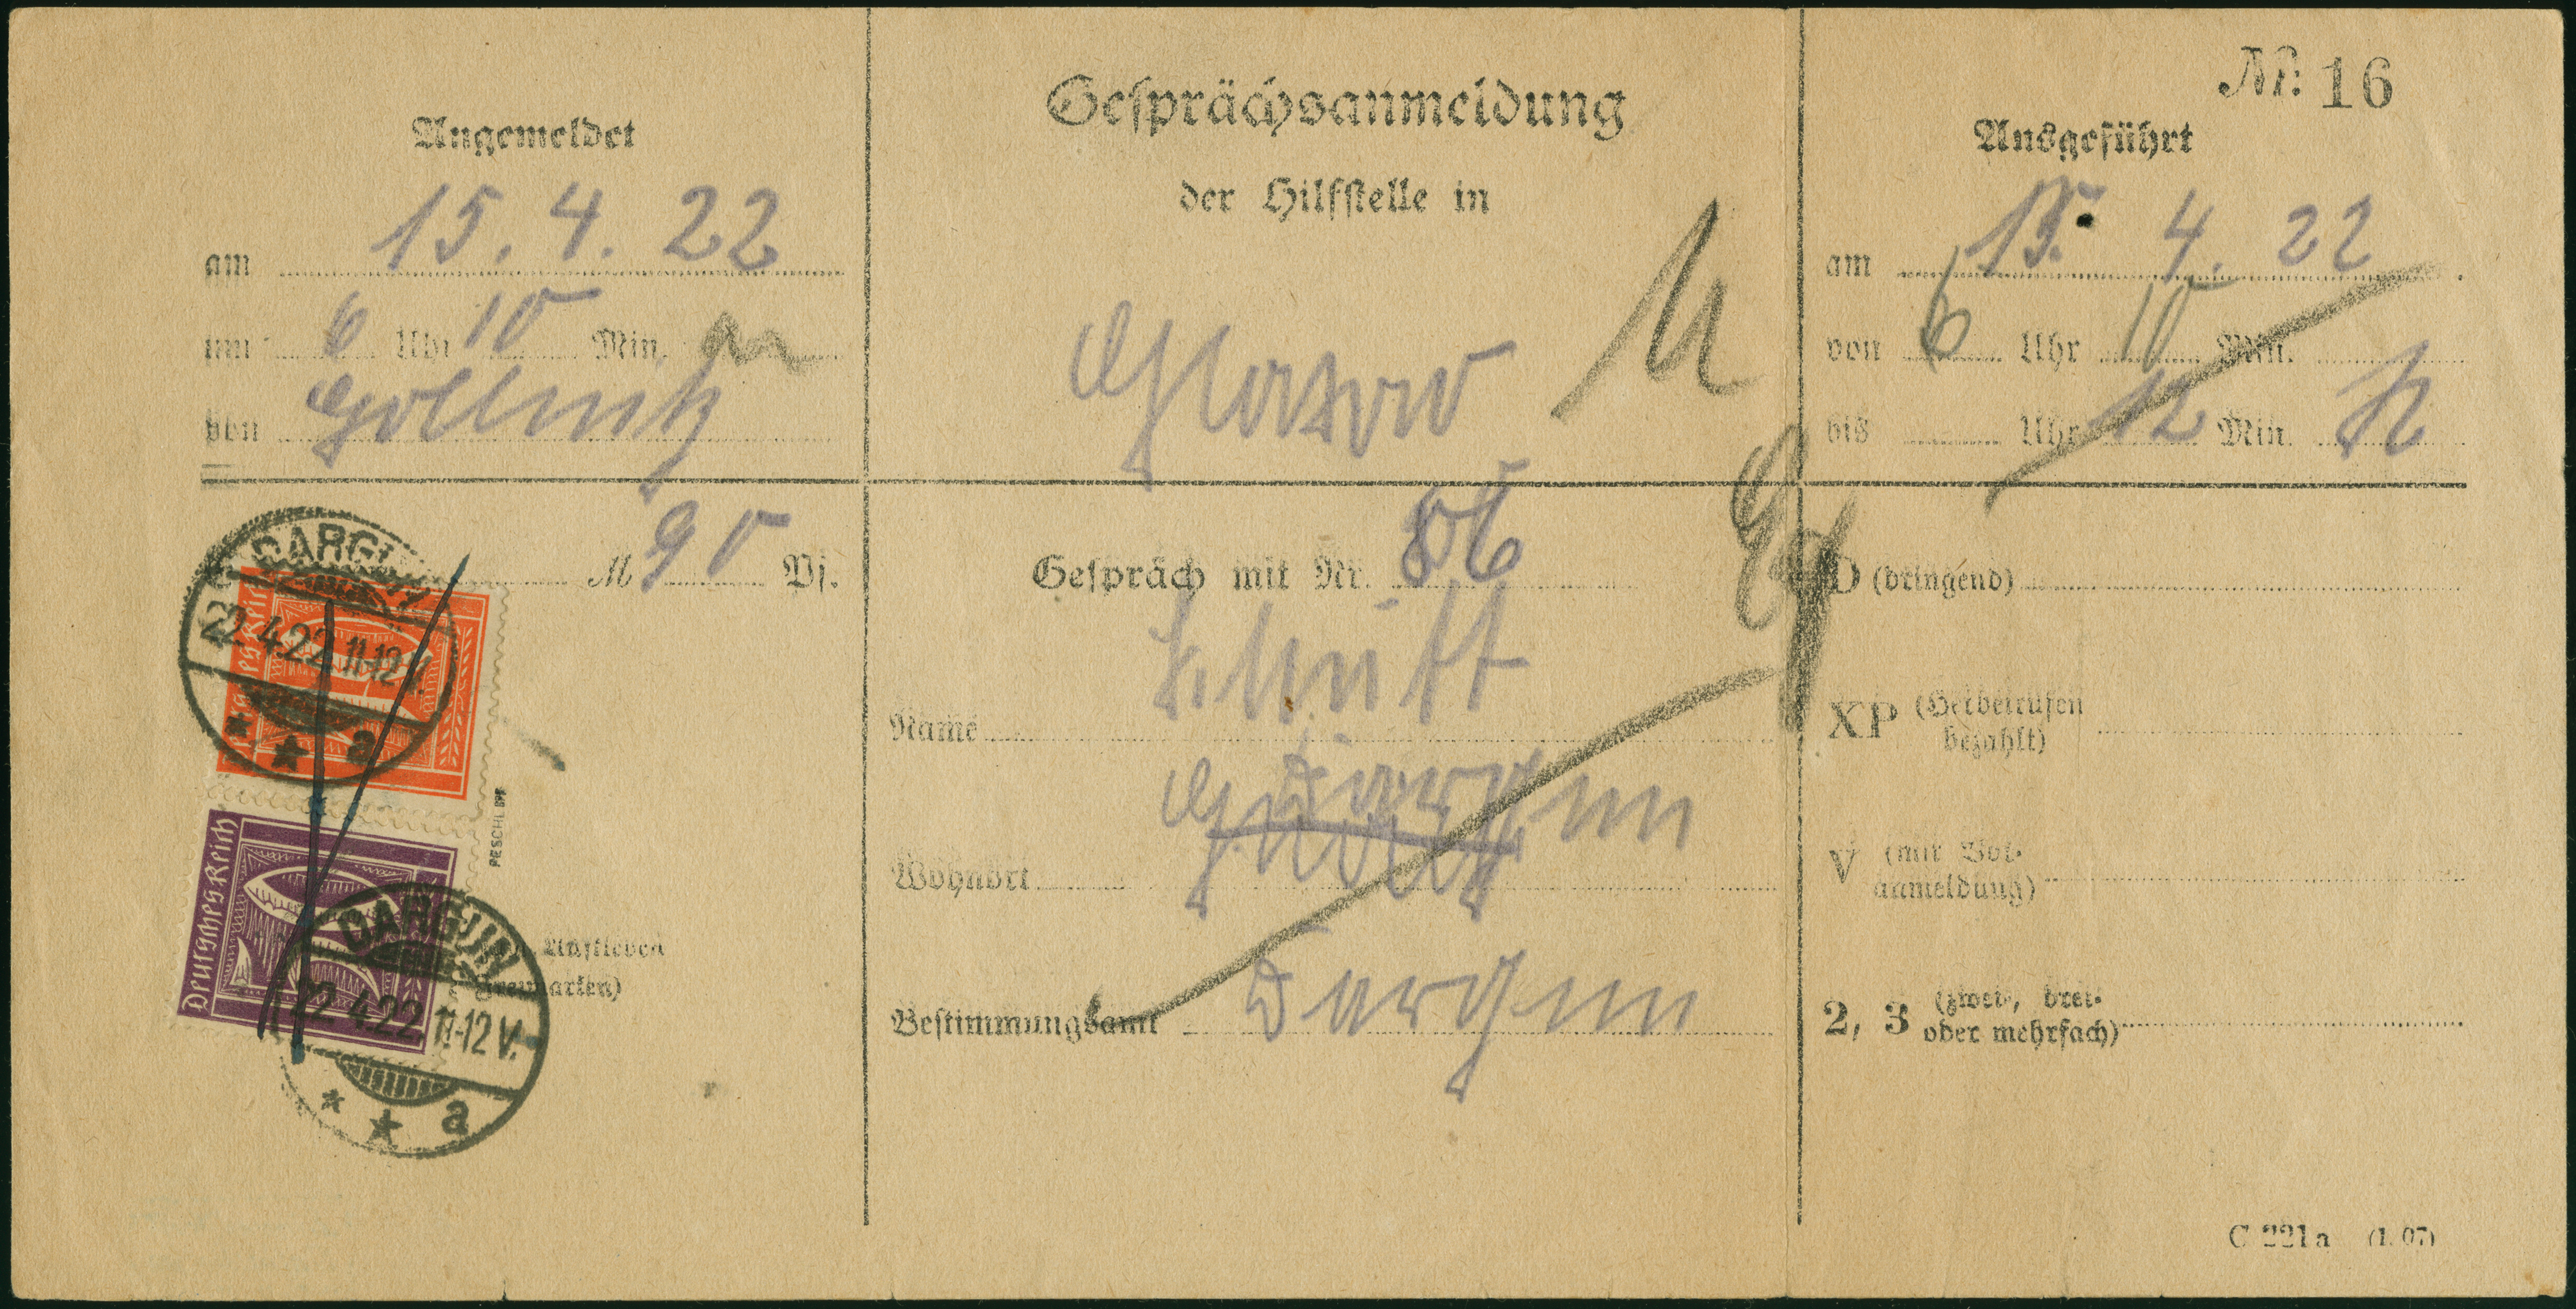 Nr. 16
Angemeldet
am 15. 4. 22
um 6 Uhr 10 Min.
von Gollnitz
Gesprächsanmeldung
der Hilfstelle in
Glasow
Ausgeführt
am 15. 4. 22
von 6 Uhr 10 Min.
bis Uhr 12 Min. N
M 90 Pf.
Deutsches Reich
DARGUN
22.4.22 11-12 V.
* * a
Deutsches Reich
DARGUN
22.4.22 11-12 V.
* * a
PESCHL BPP
Aufkleben
Freimarken)
Gespräch mit Nr. 56
Name
Wohnort Dargun
Bestimmungsamt Dargun
D (dringend)
XP (Herbeirufen
bezahlt)
V (mit Vor-
anmeldung)
2, 3 (zwei-, drei-
oder mehrfach)
C 221a (1. 07)